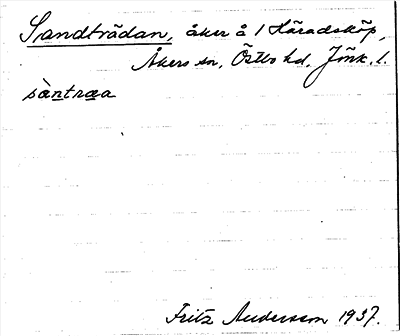 Sandträdan, åker å 1 Häradsköp,
Åkers sn, Östbo hd. Jönk. l.
sàntræa
Fritz Andersson 1937.